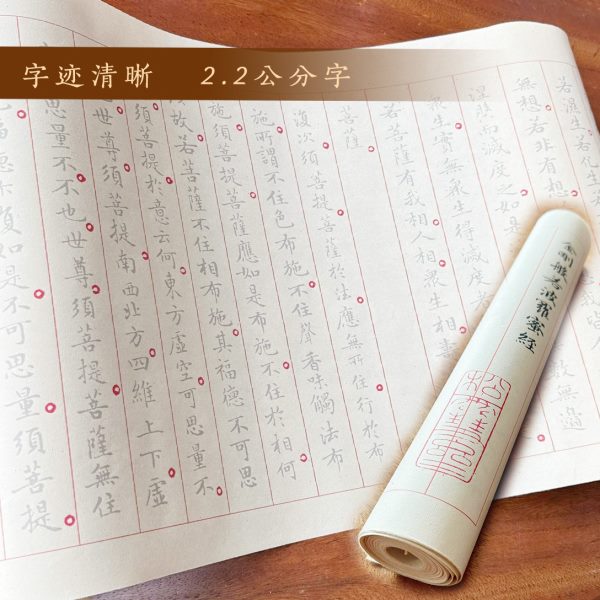 字迹清晰 2.2公分字
若濕生若化
無想若非有想
涅槃而滅度之如是
衆生實無衆生得滅度者
若菩薩有我相人相衆生相壽
菩薩
復次須菩提菩薩於法應無所住行於布
施所謂不住色布施不住聲香味觸法布
施須菩提菩薩應如是布施不住於相何
故若菩薩不住相布施其福德不可思
須菩提於意云何東方虛空可思量不
也世尊須菩提南西北方四維上下虛
思量不不也世尊須菩提菩薩無住
福德亦復如是不可思量須菩提
金剛般若波羅蜜經